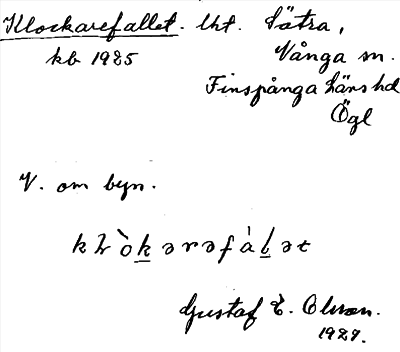 Klockarefallet. lht. Sätra,
kb 1925 Vånga sn.
Finspånga läns hd
Ögl
V. om byn.
kl̀òkərəfàlət
Gustaf E. Olsson.
1927.